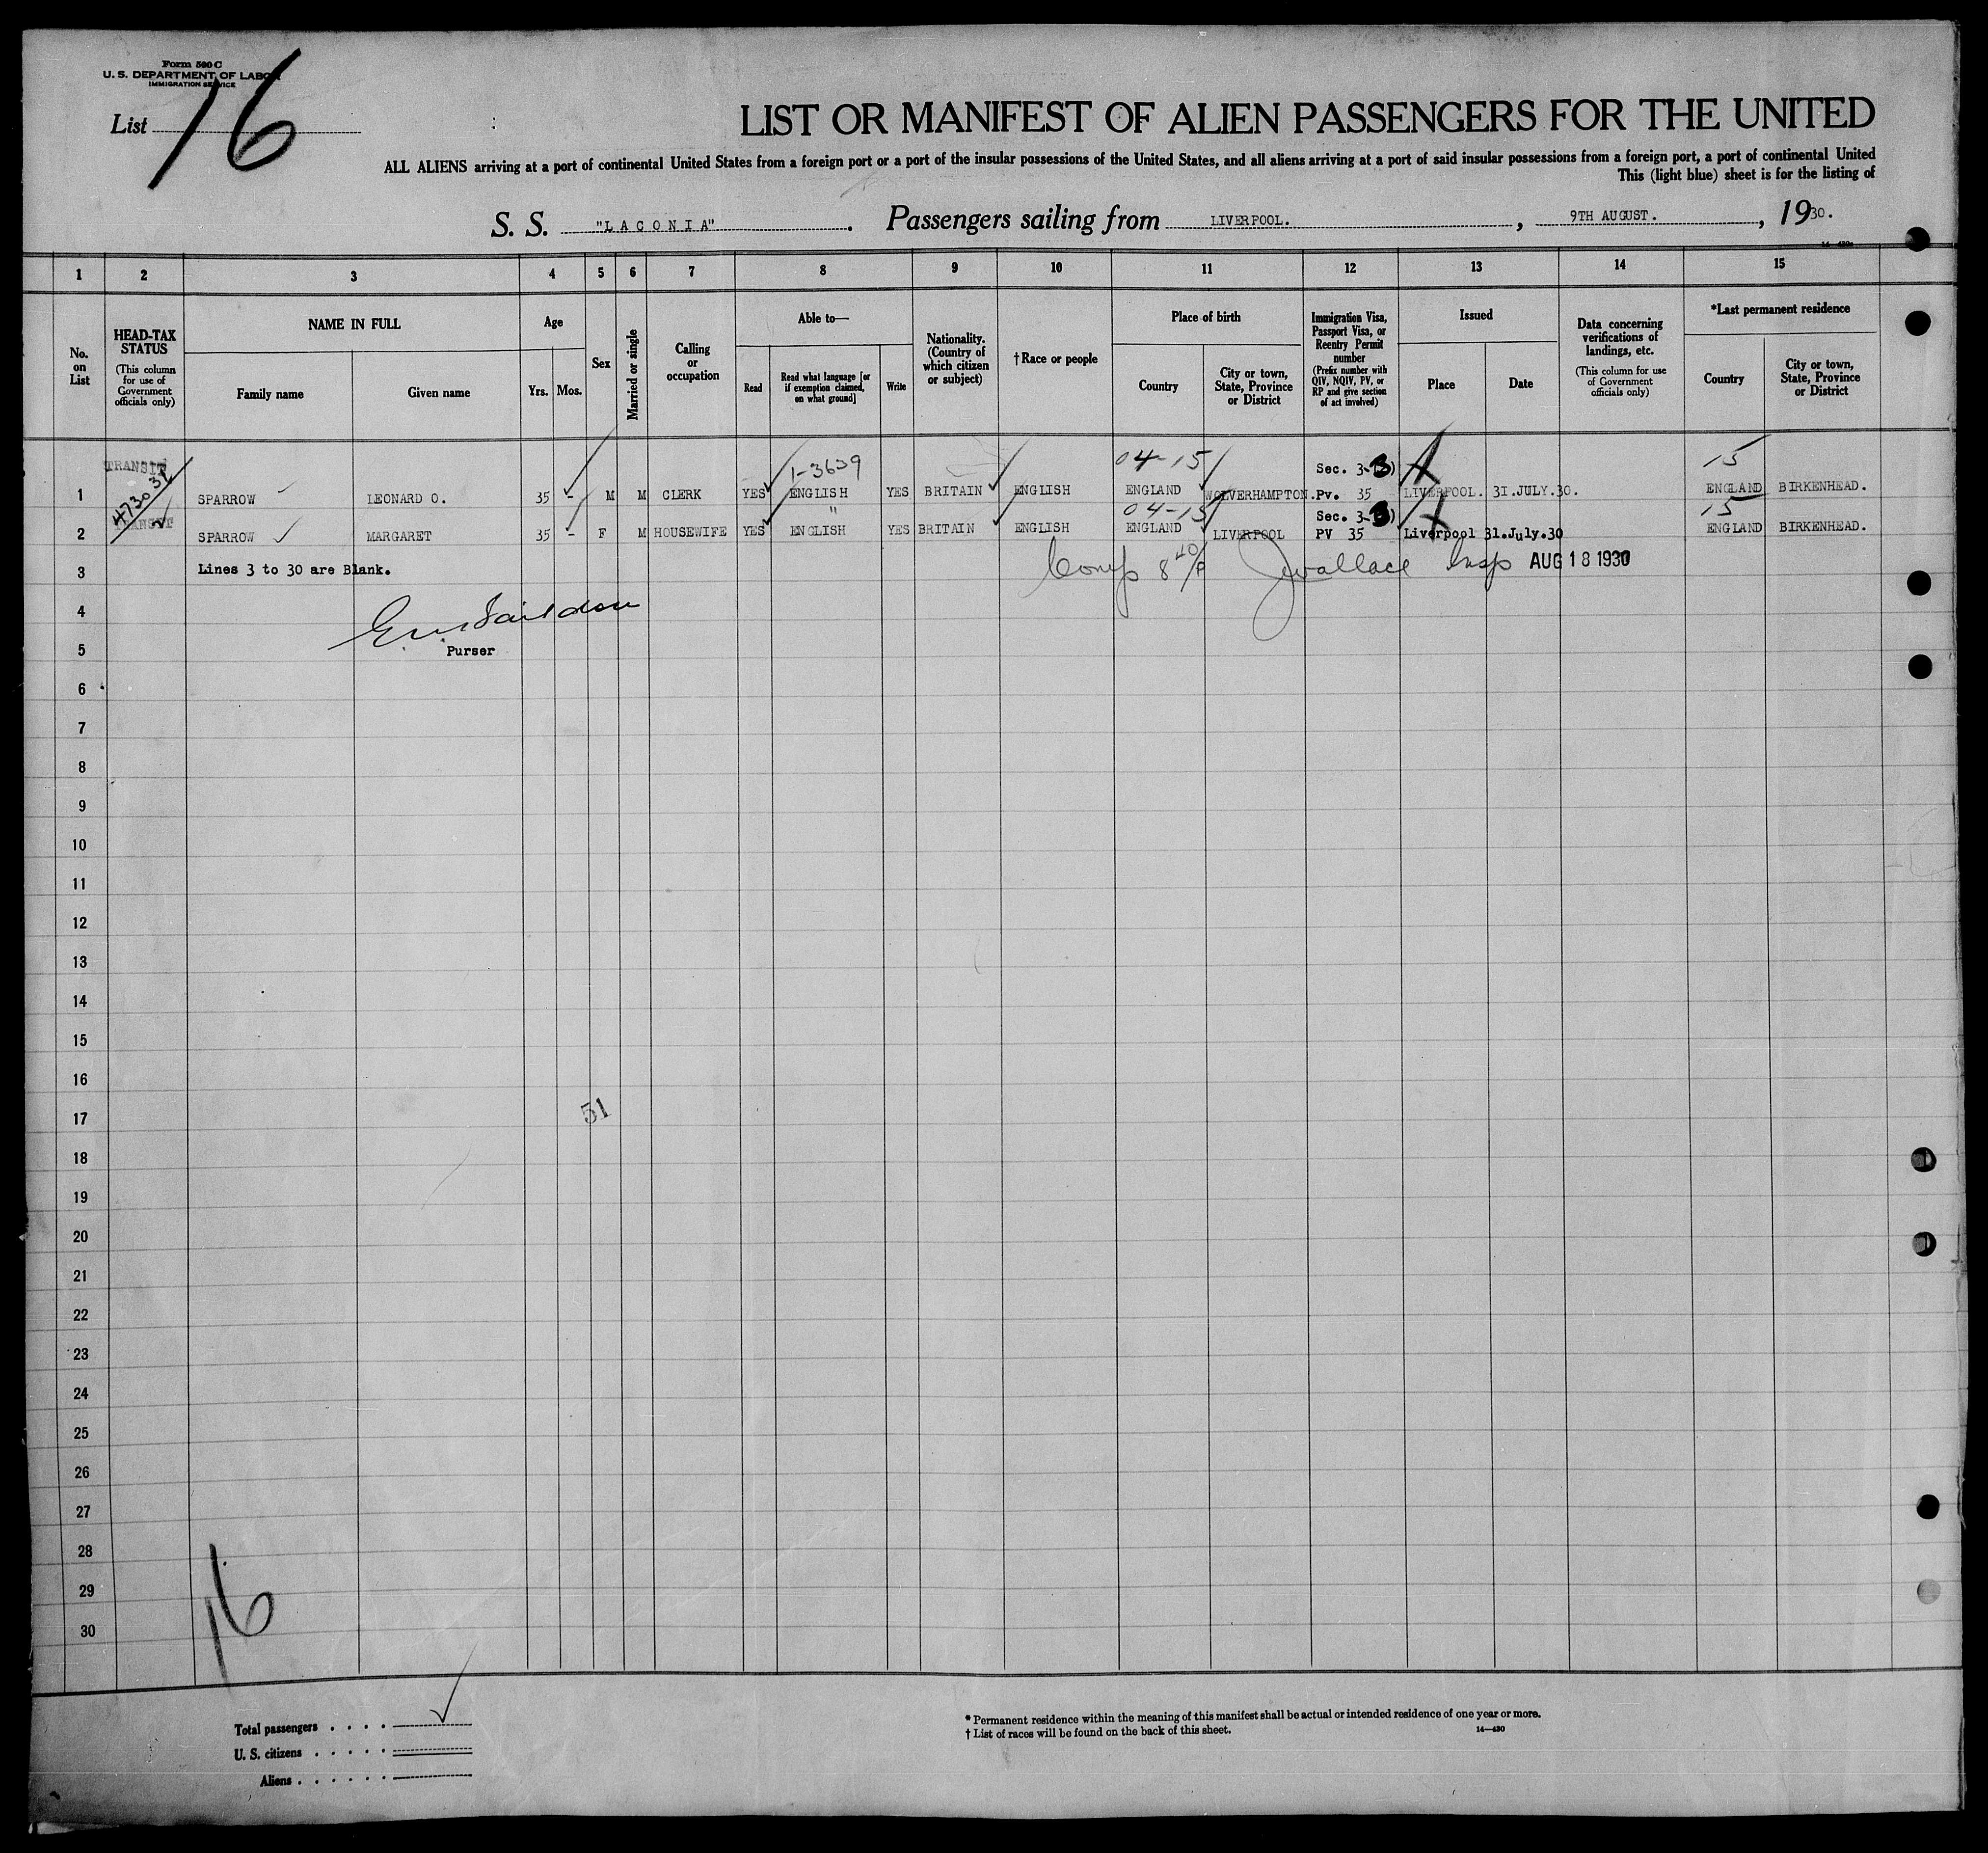 Form 500 C
U. S. DEPARTMENT OF LABOR
IMMIGRATION SERVICE
List 16
LIST OR MANIFEST OF ALIEN PASSENGERS FOR THE UNITED
ALL ALIENS arriving at a port of continental United States from a foreign port or a port of the insular possessions of the United States, and all aliens arriving at a port of said insular possessions from a foreign port, a port of continental United
This (light blue) sheet is for the listing of
S. S. "LACONIA". Passengers sailing from LIVERPOOL. , 9TH AUGUST. , 1930.
1 2 3 4 5 6 7 8 9 10 11 12 13 14 15
No. on List
HEAD-TAX STATUS
(This column for use of Government officials only)
NAME IN FULL
Family name Given name
Age
Yrs. Mos.
Sex
Married or single
Calling or occupation
Able to—
Read
Read what language [or if exemption claimed, on what ground]
Write
Nationality. (Country of which citizen or subject)
†Race or people
Place of birth
Country
City or town, State, Province or District
Immigration Visa, Passport Visa, or Reentry Permit number
(Prefix number with QIV, NQIV, PV, or RP and give section of act involved)
Issued
Place Date
Data concerning verifications of landings, etc.
(This column for use of Government officials only)
*Last permanent residence
Country
City or town, State, Province or District
TRANSIT 1-3639 04-15 Sec. 3-3) 15
1 SPARROW LEONARD O. 35 - M M CLERK YES ENGLISH YES BRITAIN ENGLISH ENGLAND WOLVERHAMPTON. Pv. 35 LIVERPOOL. 31.JULY.30. ENGLAND BIRKENHEAD.
TRANSIT " 04-15 Sec. 3-3) 15
2 SPARROW MARGARET 35 - F M HOUSEWIFE YES ENGLISH YES BRITAIN ENGLISH ENGLAND LIVERPOOL PV 35 Liverpool 31.July.30 ENGLAND BIRKENHEAD.
3 Lines 3 to 30 are Blank. Comp 8 40/P Wallace Insp AUG 18 1930
4
5 Purser
6
7
8
9
10
11
12
13
14
15
16
17 51
18
19
20
21
22
23
24
25
26
27
28
29
30
16
Total passengers . . . .
U. S. citizens . . . . .
Aliens . . . . . .
* Permanent residence within the meaning of this manifest shall be actual or intended residence of one year or more.
† List of races will be found on the back of this sheet. 14—430